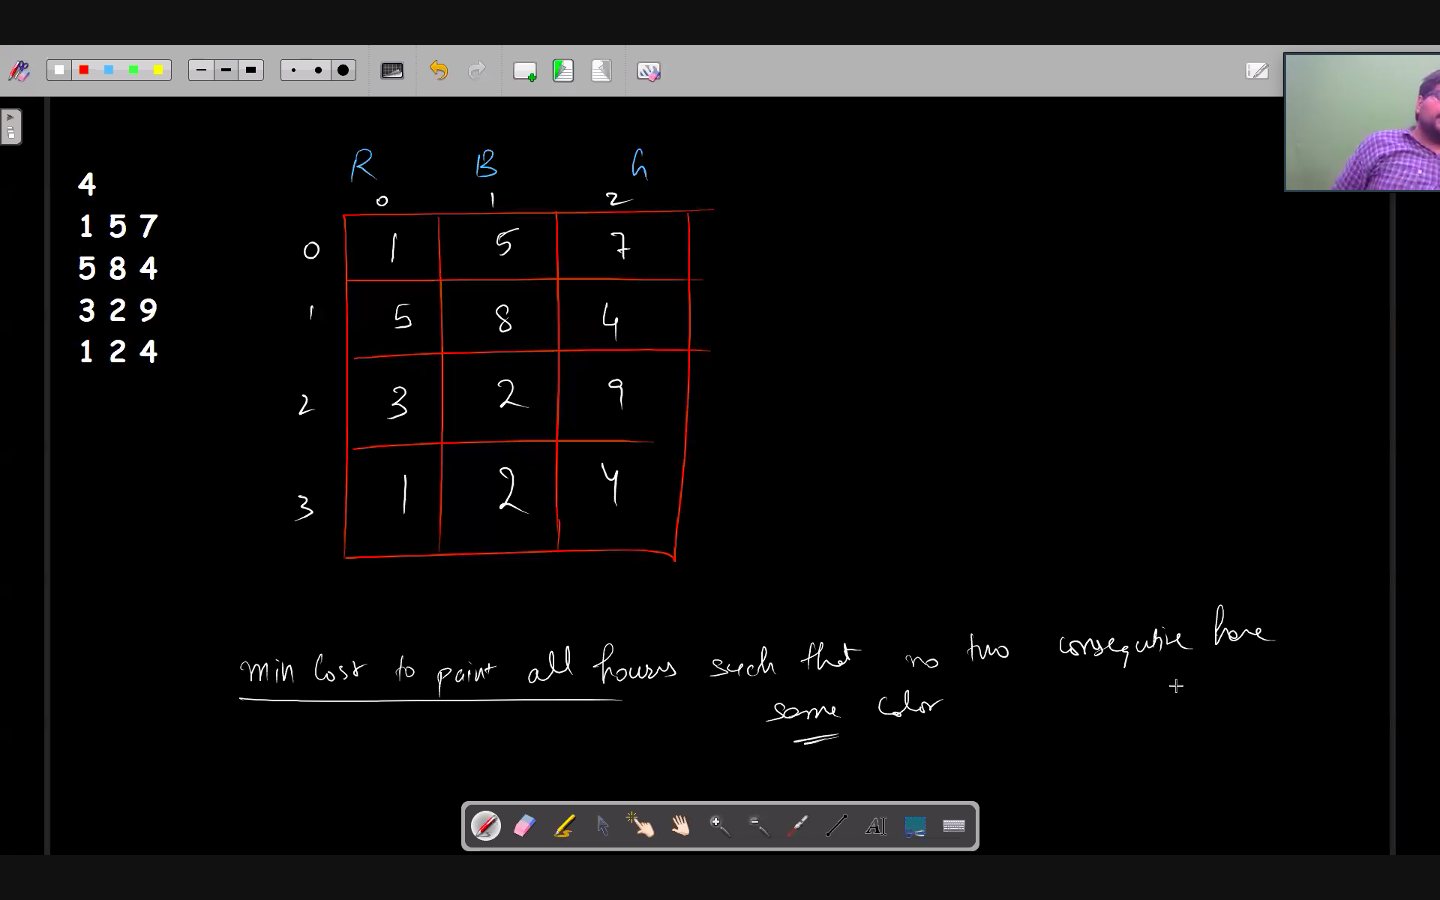 4
1 5 7
5 8 4
3 2 9
1 2 4
R B G
0 1 2
0 1 5 7
1 5 8 4
2 3 2 9
3 1 2 4
min cost to paint all houses such that no two consequtive have
same color
AI